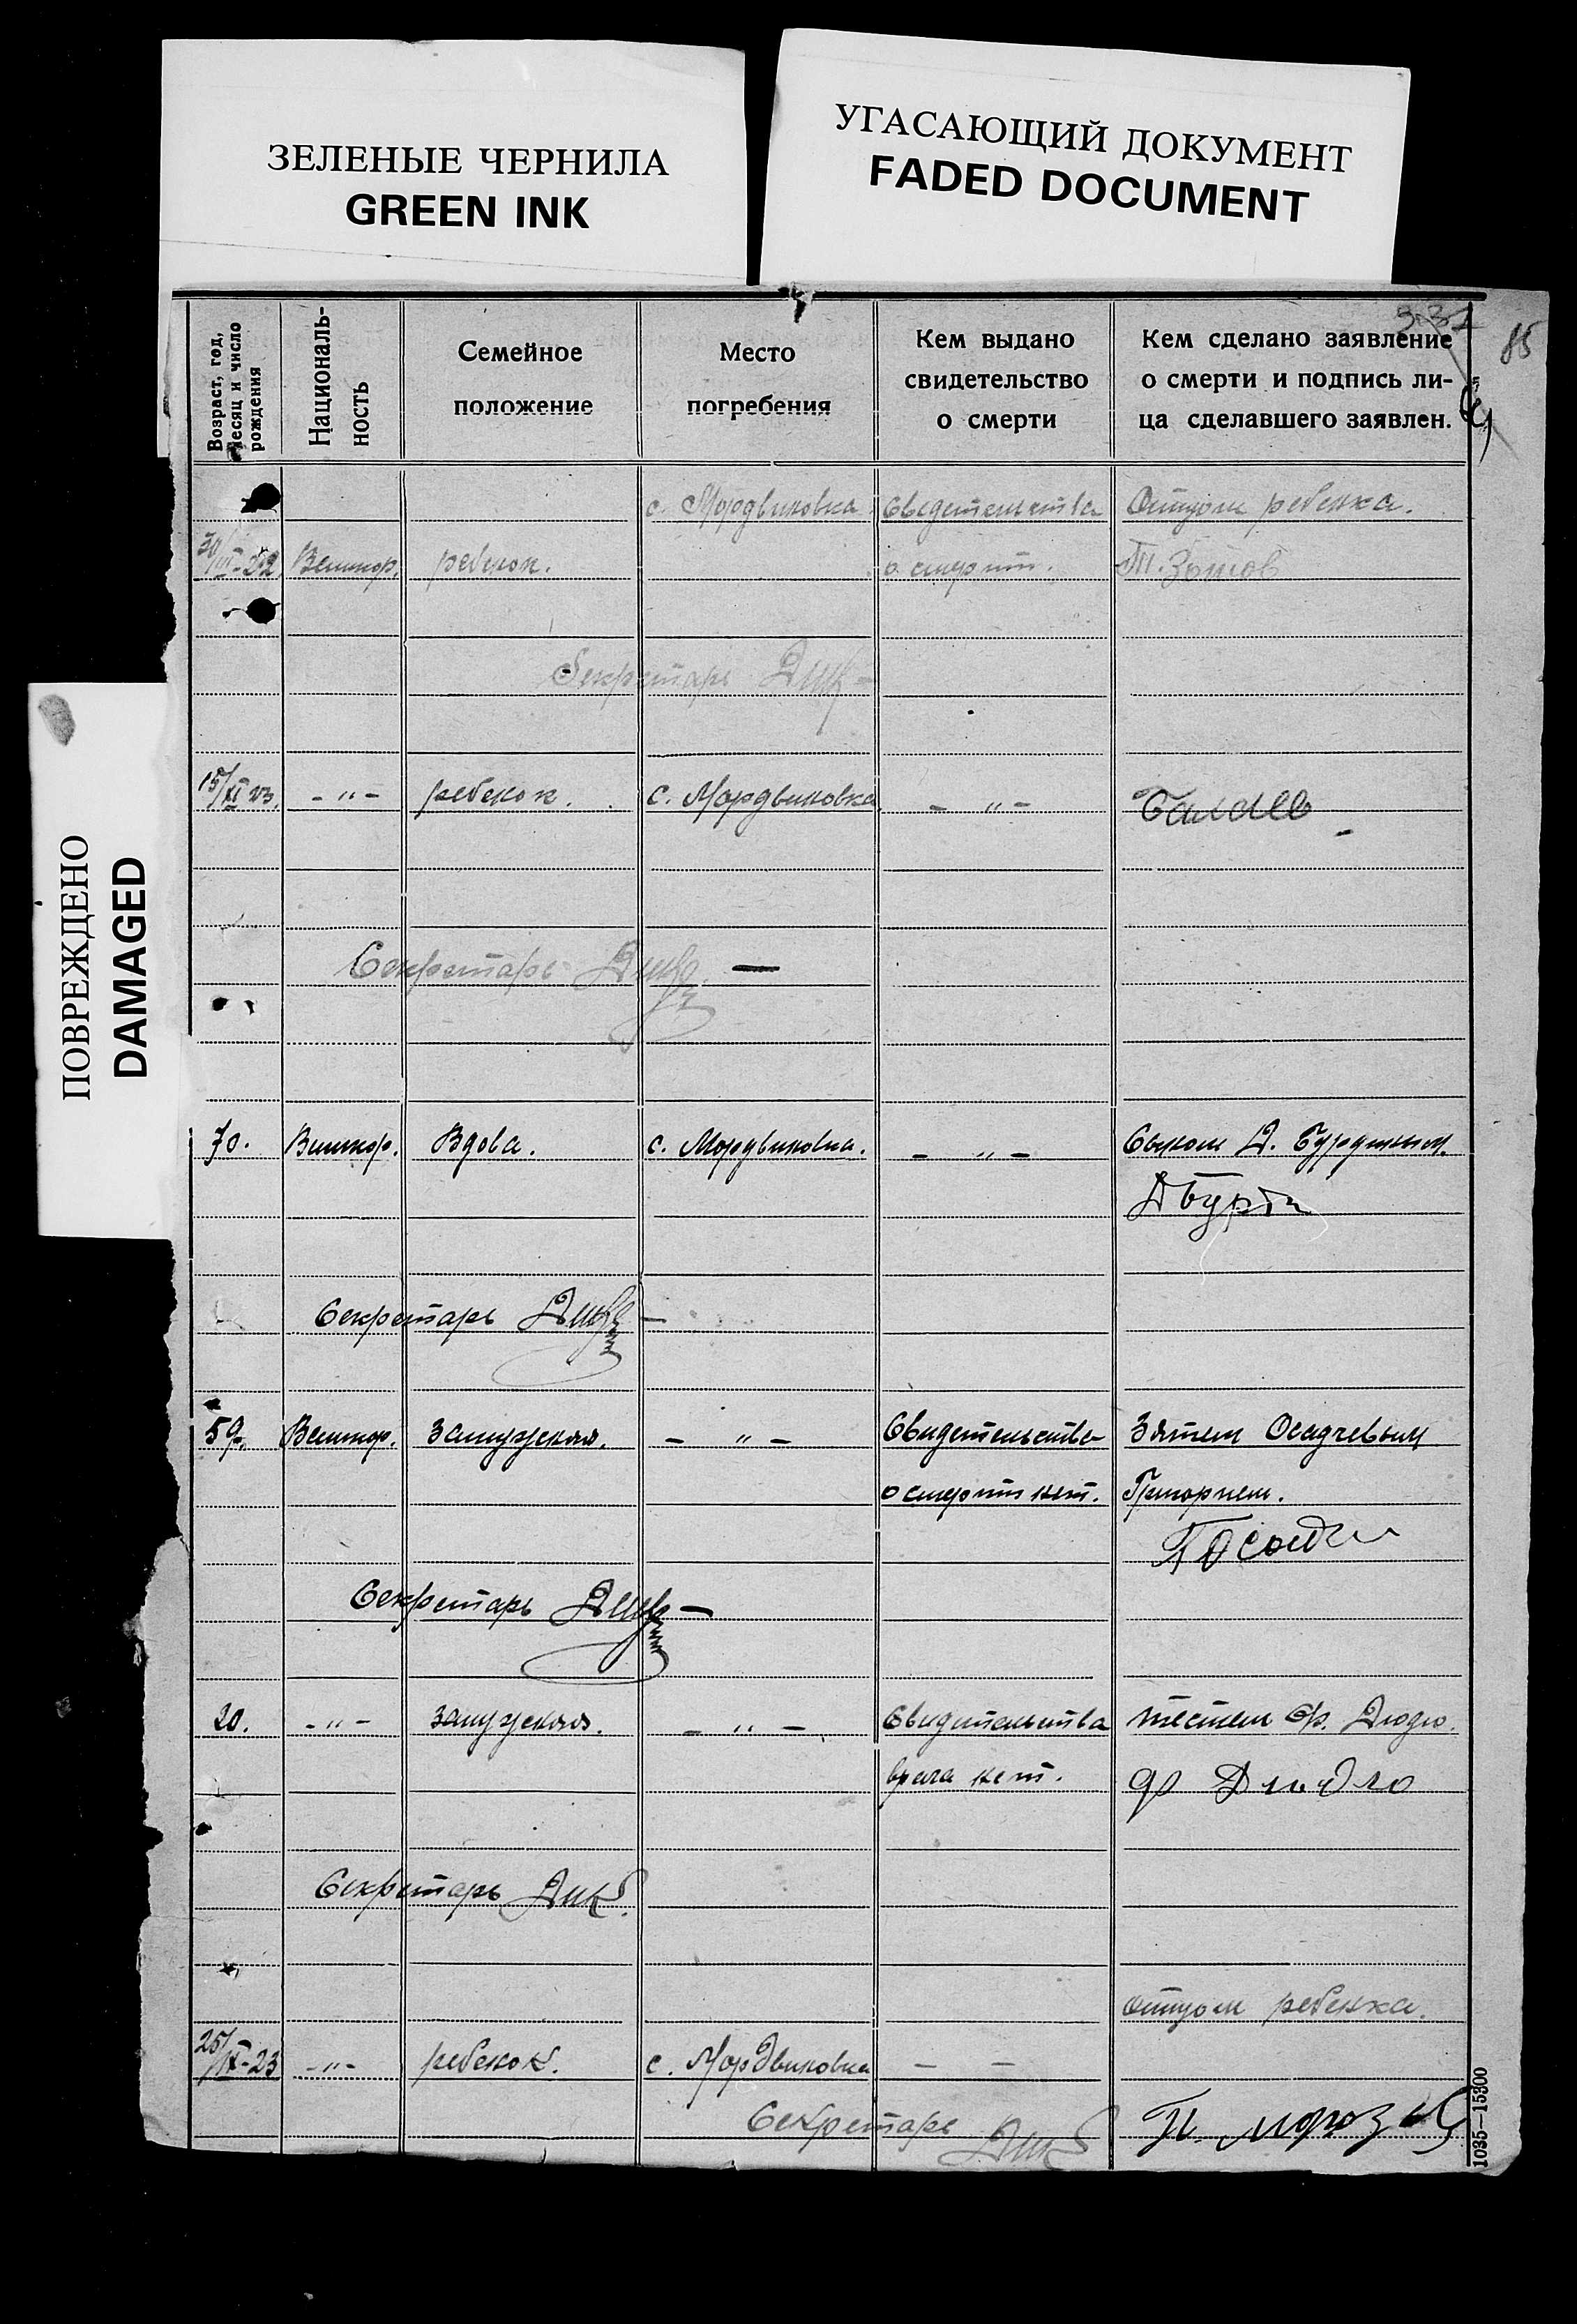 ЗЕЛЕНЫЕ ЧЕРНИЛА
GREEN INK
УГАСАЮЩИЙ ДОКУМЕНТ
FADED DOCUMENT
ПОВРЕЖДЕНО
DAMAGED
85
Возраст, год, месяц и число рождения
Националь-
ность
Семейное
положение
Место
погребения
Кем выдано
свидетельство
о смерти
Кем сделано заявление
о смерти и подпись ли-
ца сделавшего заявлен.
с. Мордвиновка Свидетельства Отцом ребенка.
Великор. ребенок. о смерти. Т. Зотов
Секретарь
15/XI 23. - " - ребенок. с. Мордвиновка - " -
Секретарь
70. Великор. Вдова. с. Мордвиновка. - " - Сыном Д.
Секретарь
59. Великор. замужняя. - " - Свидетельство Зятем Осадчевым
о смерти нет. Григорием.
Секретарь
20. - " - замужняя. - " - Свидетельства тестем Ф. Дюдю.
врача нет.
Секретарь
отцом ребенка.
25/IX-23 - " - ребенок. с. Мордвиновка - -
Секретарь
1035—15300